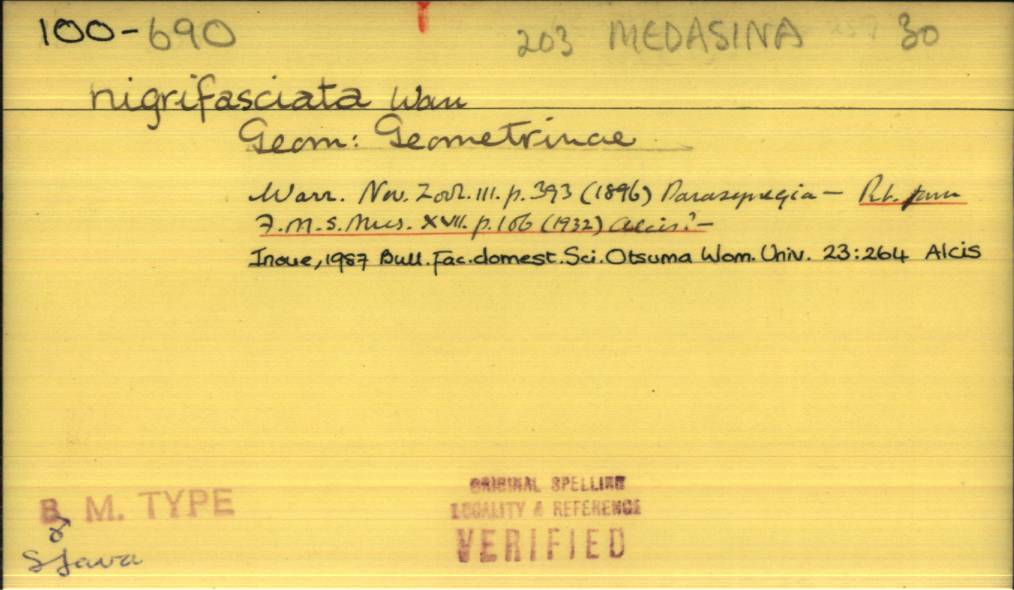 100-690 203 MEDASINA 257 30
nigrifasciata Warr
Geom: Geometrinae
Warr. Nov. Zool. III. p. 393 (1896) Parasynegia — 
F.M.S. Mus. XVII. p. 106 (1932) Alcis? —
Inoue, 1987 Bull. Fac. domest. Sci. Otsuma Wom. Univ. 23:264 Alcis
B. M. TYPE
♂
S Java
ORIGINAL SPELLING
LOCALITY & REFERENCE
VERIFIED